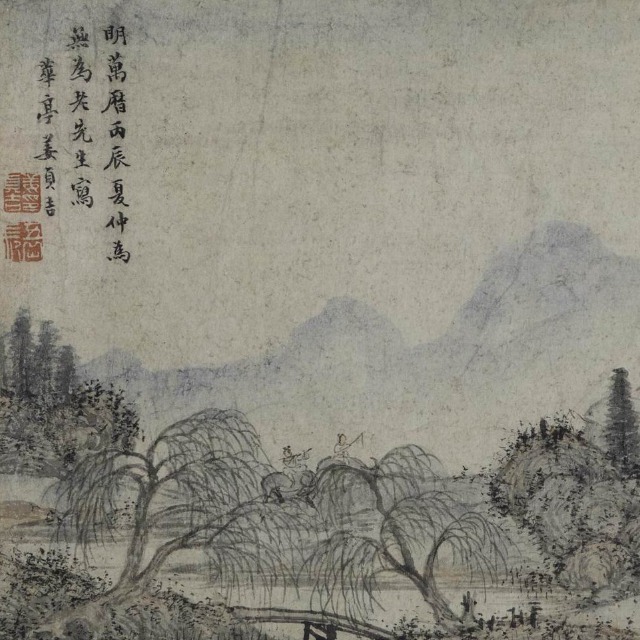 明萬曆丙辰夏仲為
無為老先生寫
華亭姜貞吉